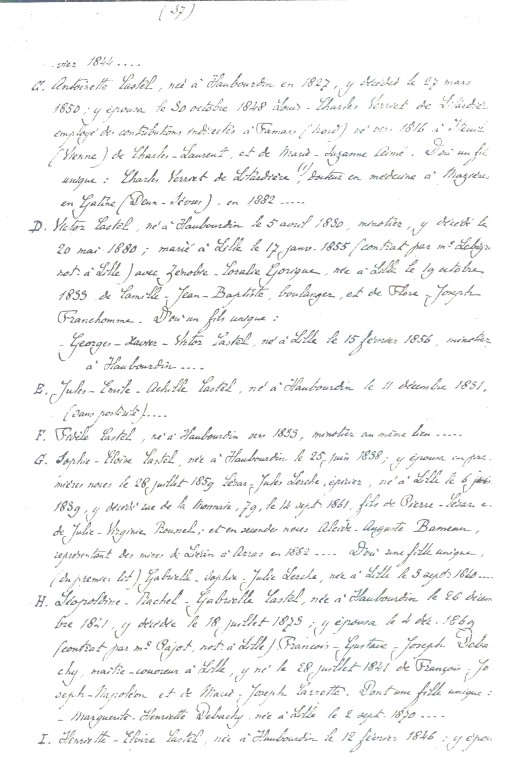 (37)
vier 1844 ....
C. Antoinette Castel, née à Haubourdin en 1827, y décédée le 27 mars
1850 ; y épousa le 30 octobre 1848 Louis-Charles Verriet de Litardière
employé des contributions indirectes à Famars (Nord) né vers 1816 à
(Vienne) de Charles-Laurent, et de Marie-Suzanne Aimé. D'où un fils
unique : Charles Verriet de Litardière (1), docteur en médecine à Mazières
en Gatine (Deux-Sèvres) en 1882 .....
D. Victor Castel, né à Haubourdin le 5 avril 1830, minotier, y décédé le
20 mai 1880 ; marié à Lille le 17 janv. 1855 (contrat par me
not. à Lille) avec Zénobie-Rosalie née à Lille le 19 octobre
1833 de Camille-Jean-Baptiste, boulanger, et de Flore-Joseph
Franchomme. D'où un fils unique :
- Georges-Xavier-Victor Castel, né à Lille le 15 février 1856, minotier
à Haubourdin ....
E. Jules-Emile-Achille Castel, né à Haubourdin le 11 décembre 1831,
(sans postérité) ....
F. Fidèle Castel, né à Haubourdin vers 1833, minotier au même lieu ....
G. Sophie-Eloire Castel, née à Haubourdin le 25 juin 1838 ; y épousa en pre-
mières noces le 28 juillet 1859 César-Jules Lerche, épicier, né à Lille le 6
1839, y décédé rue de la Monnaie, 79, le 14 sept. 1861, fils de Pierre-César et
de Julie-Virginie ; et en secondes noces Alcide-Auguste Bameau,
représentant des mines de Liévin à Arras en 1882 .... D'où une fille unique,
(du premier lit) Gabrielle-Sophie-Julie Lerche, née à Lille le 3 sept. 1860 ....
H. Léopoldine-Rachel-Gabrielle Castel, née à Haubourdin le 26 décem
bre 1841, y décédée le 18 juillet 1873 ; y épousa le 4 déc. 1869
(contrat par me Pajot, not. à Lille) François-Gustave-Joseph Deba
chy, maître-couvreur à Lille, y né le 28 juillet 1841 de François-Jo
seph-Napoléon et de Marie-Joseph Carrette. Dont une fille unique :
- Marguerite-Henriette Debachy, née à Lille le 2 sept. 1870 ....
I. Henriette-Eloire Castel, née à Haubourdin le 12 février 1846 ; y épou